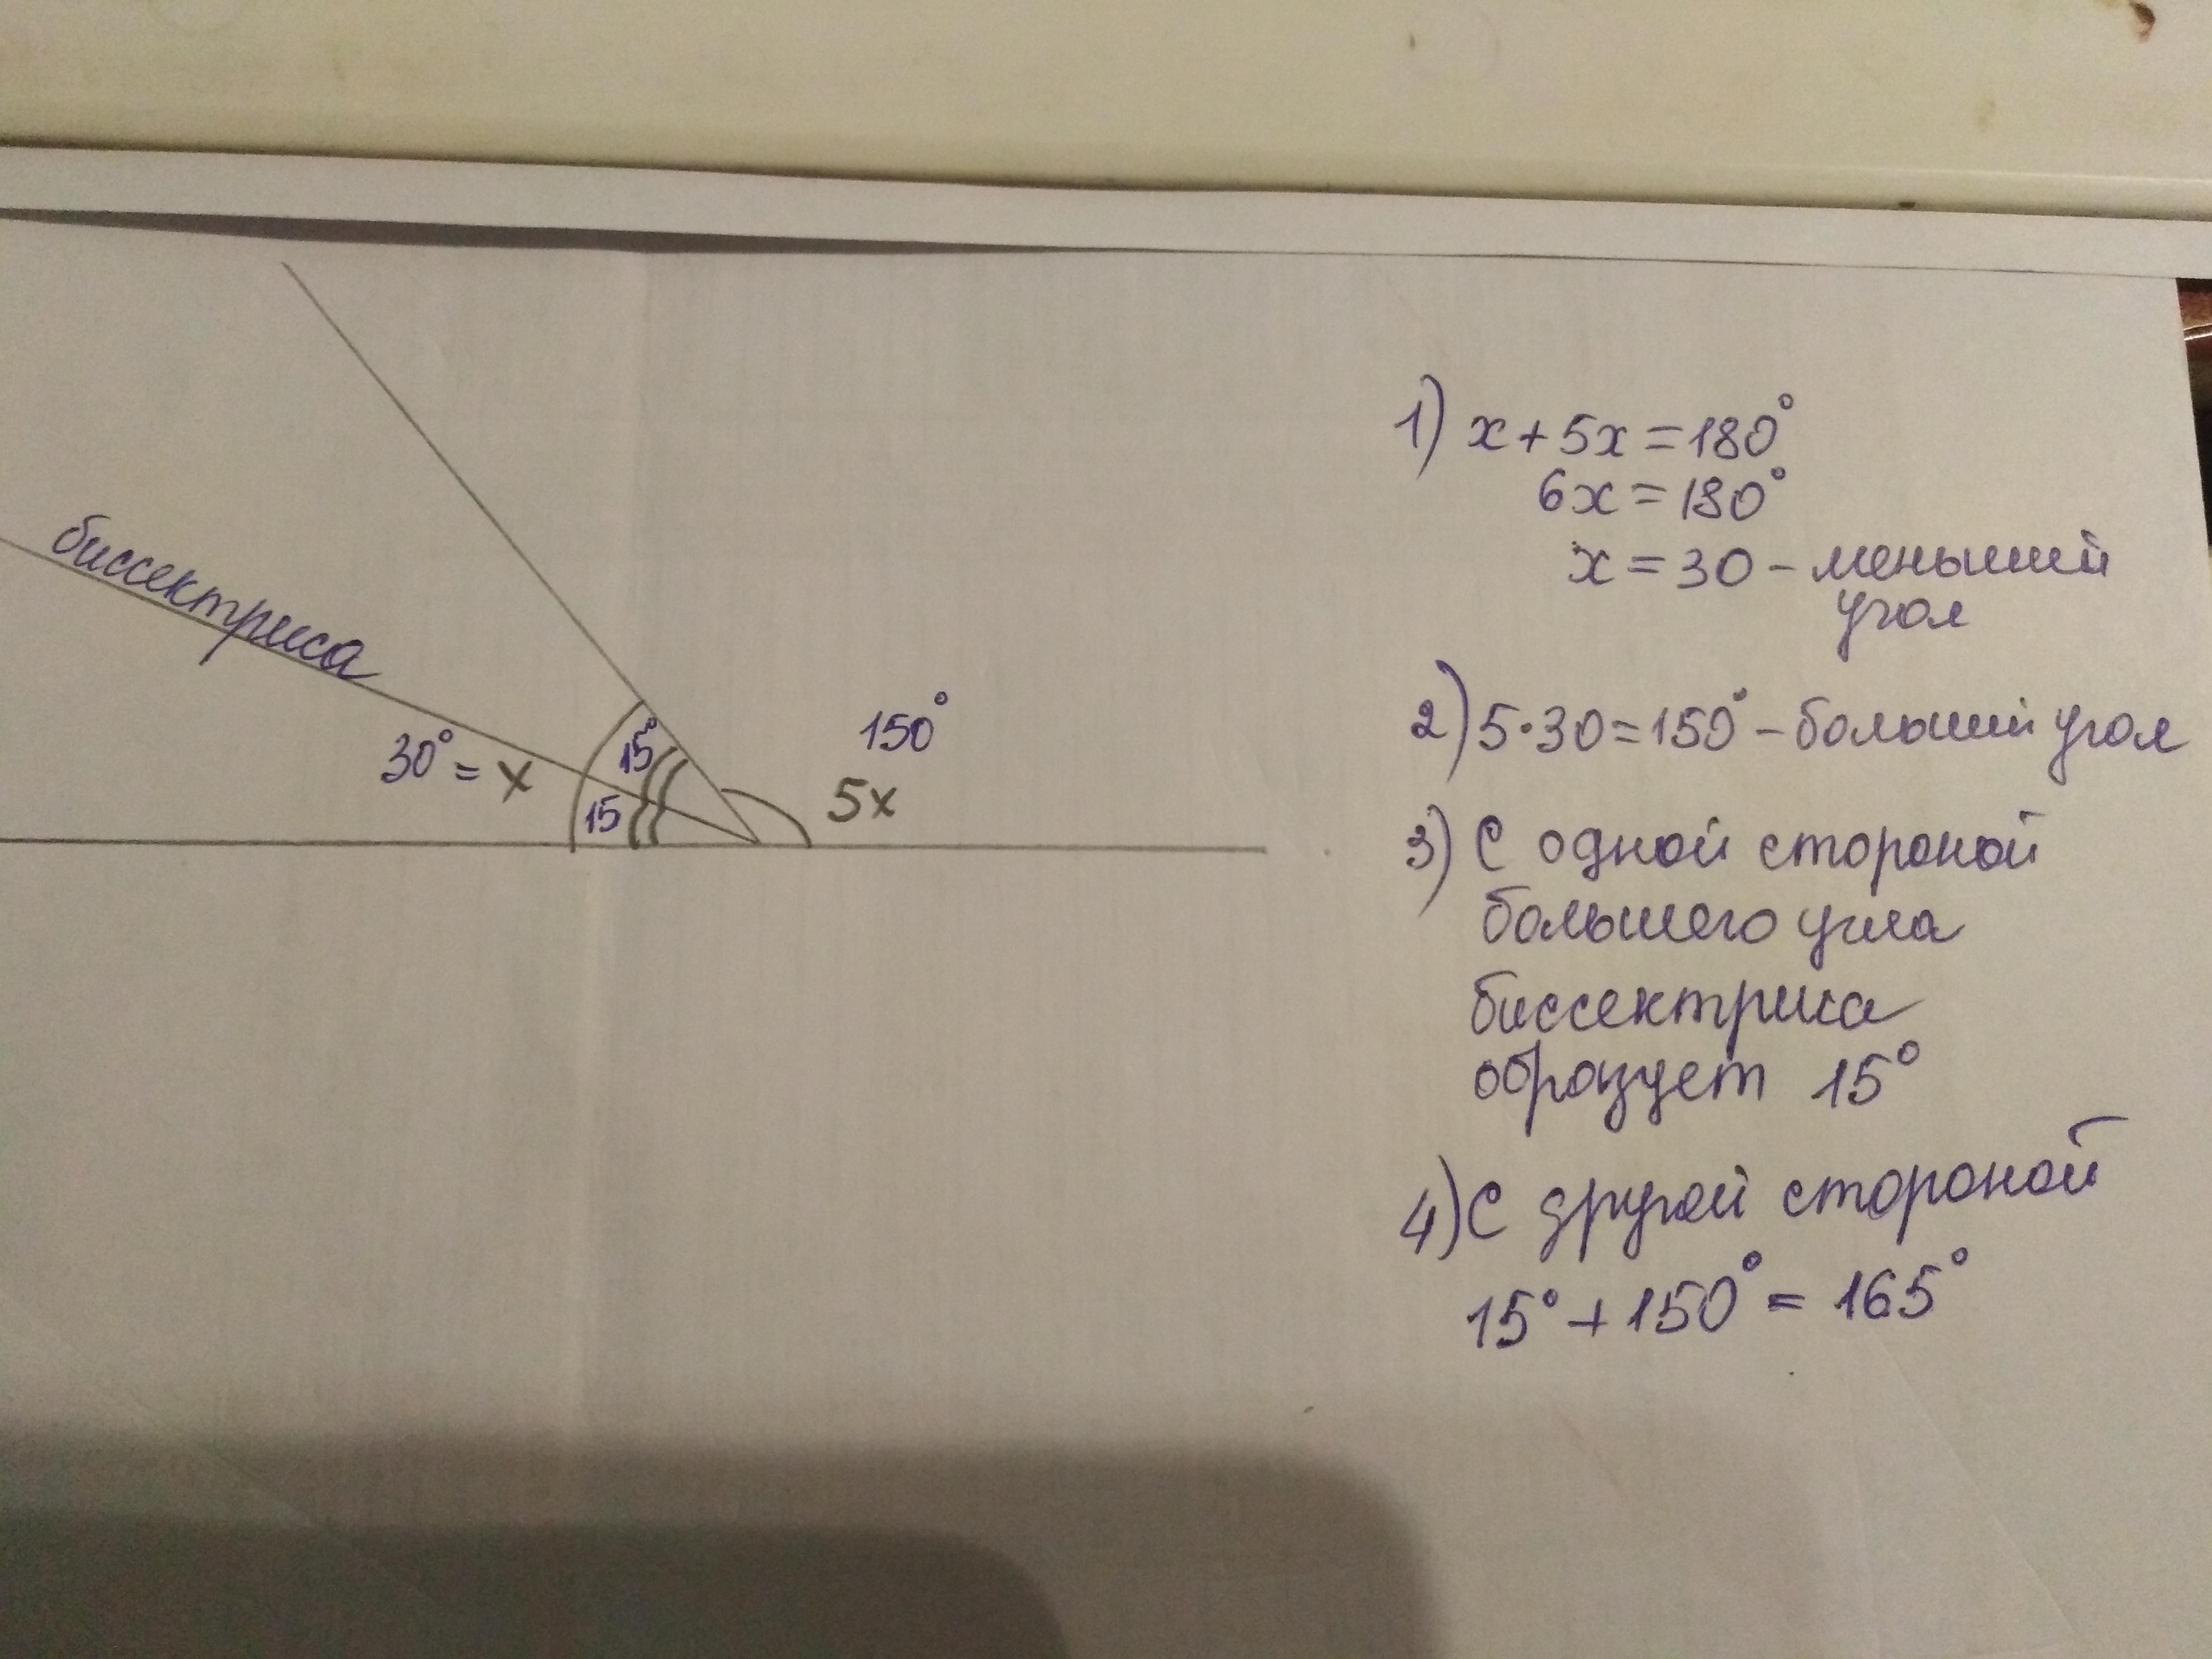 биссектриса
30° = x
15°
15
150°
5x
1) x + 5x = 180°
6x = 180°
x = 30 - меньший
угол
2) 5·30 = 150° - больший угол
3) С одной стороной
большего угла
биссектриса
образует 15°
4) С другой стороной
15° + 150° = 165°